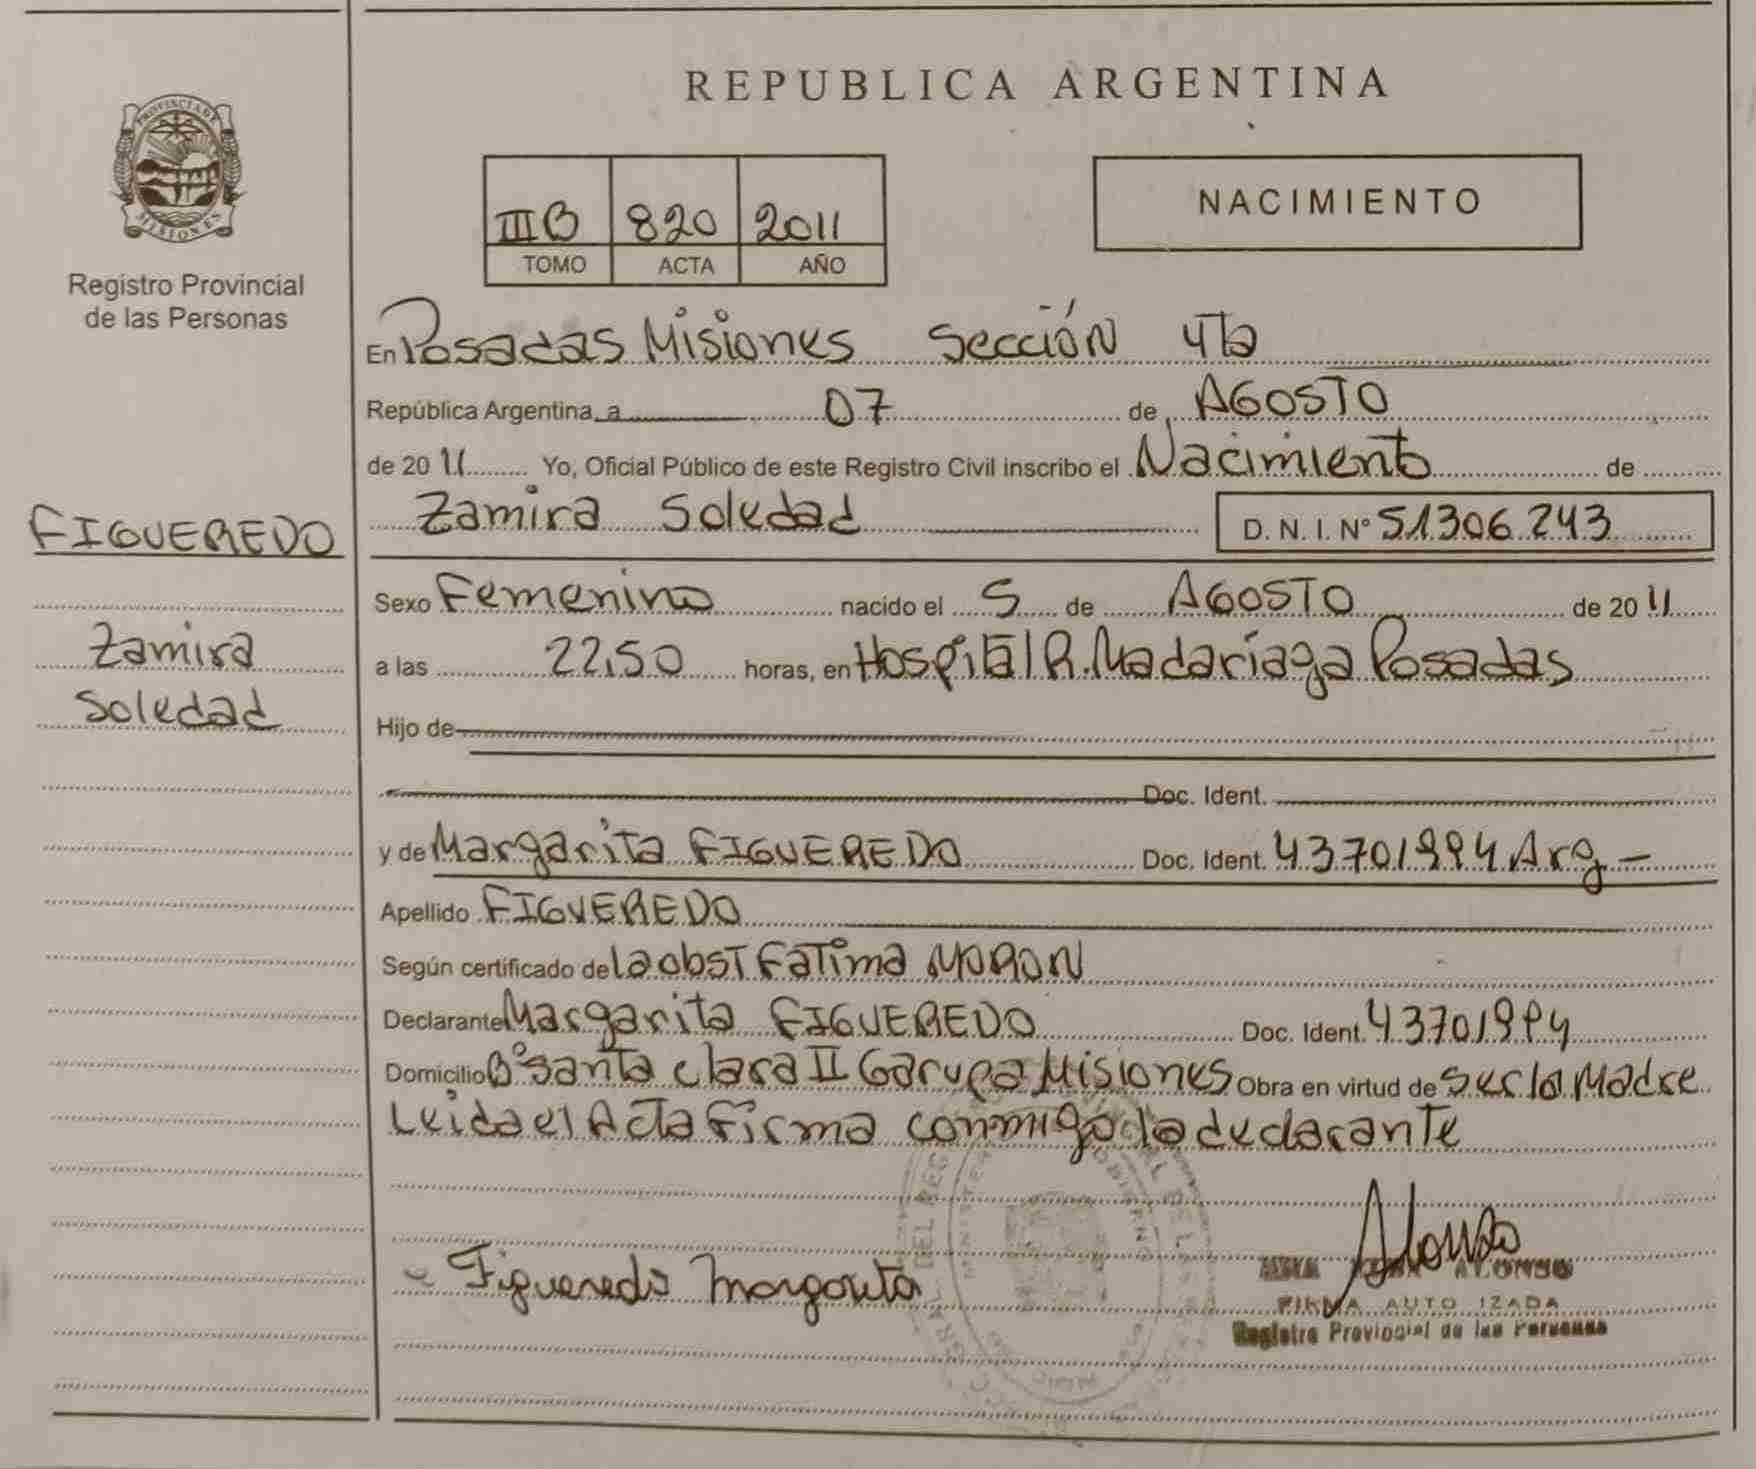 PROVINCIA DE
MISIONES
Registro Provincial
de las Personas
FIGUEREDO
Zamira
Soledad
REPUBLICA ARGENTINA
III B 820 2011
TOMO ACTA AÑO
NACIMIENTO
En Posadas Misiones Sección 4ta
República Argentina, a 07 de AGOSTO
de 2011 Yo, Oficial Público de este Registro Civil inscribo el Nacimiento de
Zamira Soledad D. N. I. Nº 51.306.243
Sexo Femenino nacido el 5 de AGOSTO de 2011
a las 22,50 horas, en Hospital R. Madariaga Posadas
Hijo de
Doc. Ident.
y de Margarita FIGUEREDO Doc. Ident. 43701994 Arg -
Apellido FIGUEREDO
Según certificado de la obst Fatima MORON
Declarante Margarita FIGUEREDO Doc. Ident. 43701994
Domicilio Bº Santa Clara II Garupa Misiones Obra en virtud de ser la Madre
Leida el Acta firma conmigo la declarante
Figueredo Margarita
Alonso
ALONSO
FIRMA AUTORIZADA
Registro Provincial de las Personas